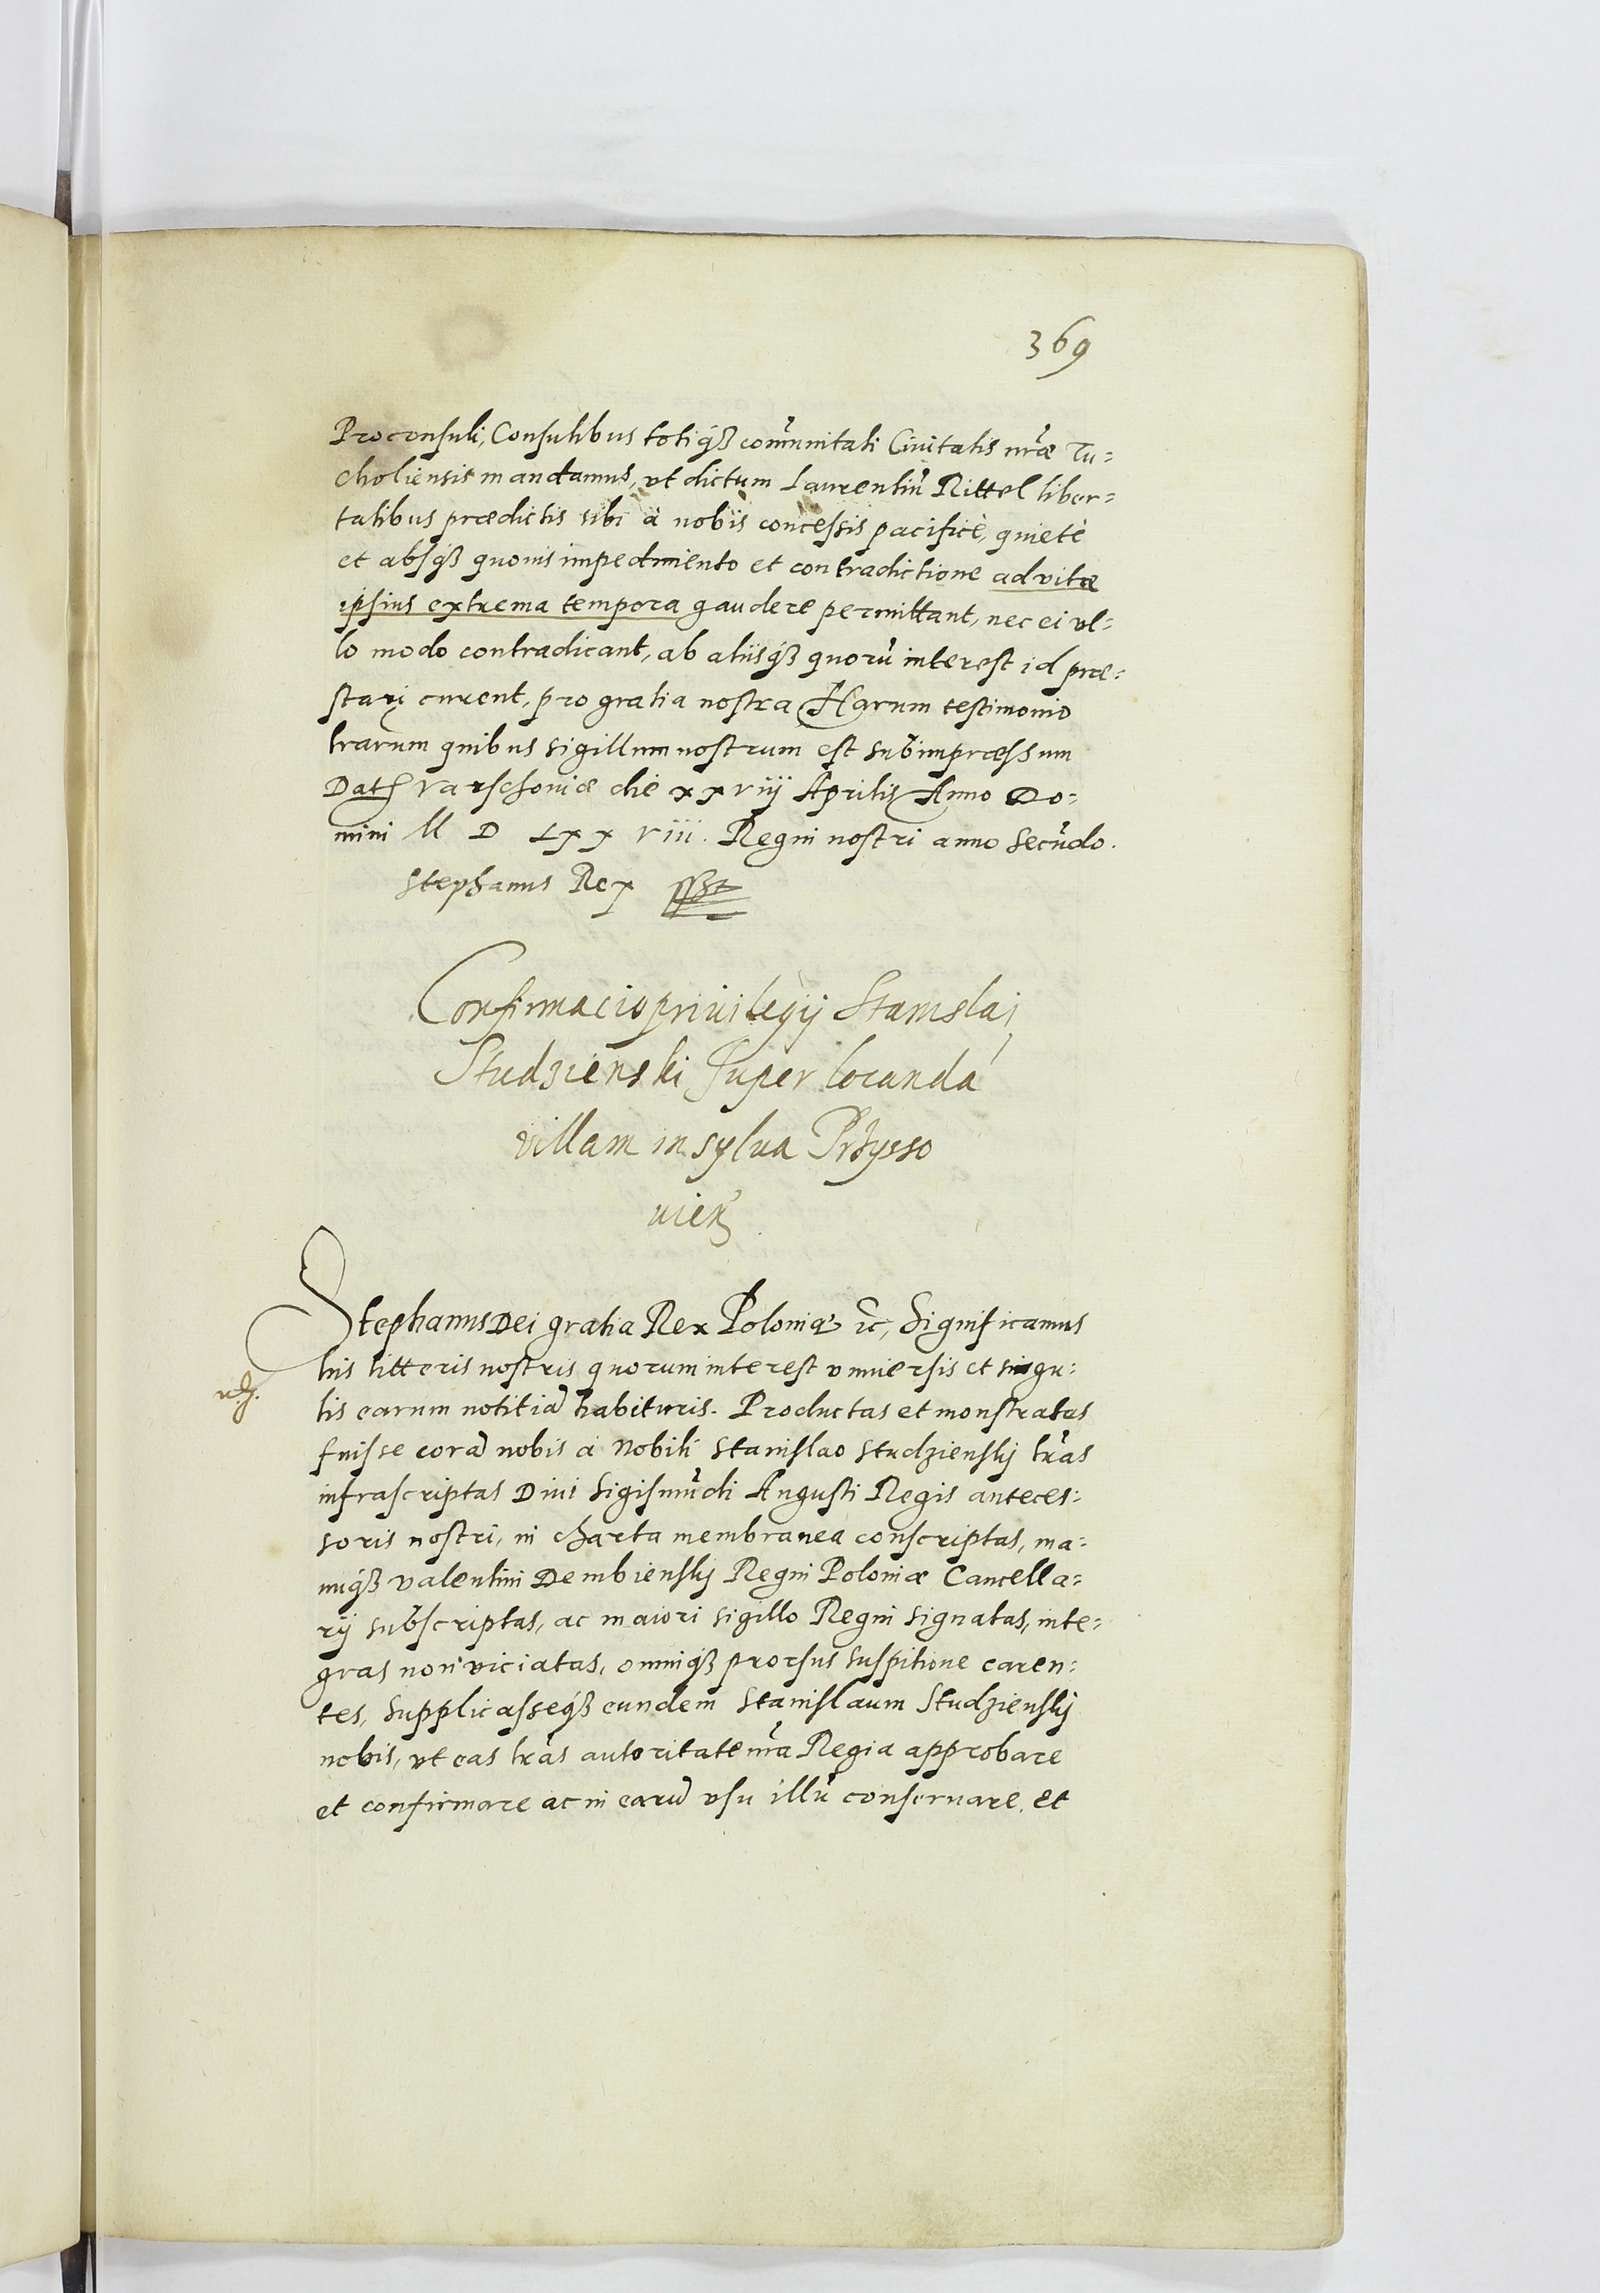 369
Proconsuli, Consulibus totiq́ꝫ com̃unitati Ciuitatis nr̃æ Tu=
choliensis mandamus, vt dictum Laurentiũ Rittel liber=
tatibus prædictis sibi à nobis concessis pacificè, quietè
et absq́ꝫ quouis impedimento et contradictione ad vitæ
ipsius extrema tempora gaudere permittant, nec ei vl=
lo modo contradicant, ab aliisq́ꝫ quorũ interest id præ=
stari curent, pro gratia nostra Harum testimonio
l̃rarum quibus sigillum nostrum est subimpræssum
Dat Varschouiæ die xxviij Aprilis Anno Do=
mini M D Lxx viii. Regni nostri anno secũdo.
Stephanus Rex
Confirmacio priuilegij Stanislai
Studzienski super locandã
villam in sylua Przysso
wien
Stephanus Dei gratia Rex Poloniæ ꝛc, Significamus
his litteris nostris quorum interest vniuersis et singu=
lis earum notitiã habituris. Productas et monstratas
fuisse corã nobis à Nobili Stanislao Studzienskij l̃ras
infrascriptas Diui Sigismũdi Augusti Regis anteces=
soris nostri, in charta membranea conscriptas, ma=
nuq́ꝫ Valentini Dembienskij Regni Poloniæ Cancella=
rij subscriptas, ac maiori sigillo Regni signatas, inte=
gras non viciatas, omniq́ꝫ prorsus suspitione caren=
tes, supplicasseq́ꝫ eundem Stanislaum Studzienskij
nobis, vt eas l̃ras autoritate nr̃a Regia approbare
et confirmare ac in earũ vsu illũ conseruare et